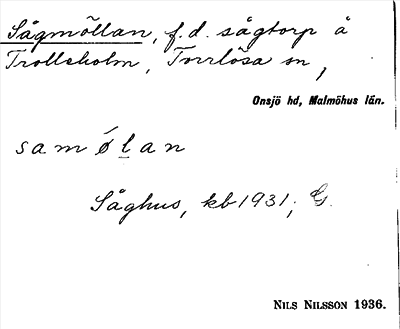 Sågmöllan, f.d. sågtorp å
Trollsholm, Torrlösa sn,
Onsjö hd, Malmöhus län.
samǿḻan
Såghus, kb 1931; G.
NILS NILSSON 1936.